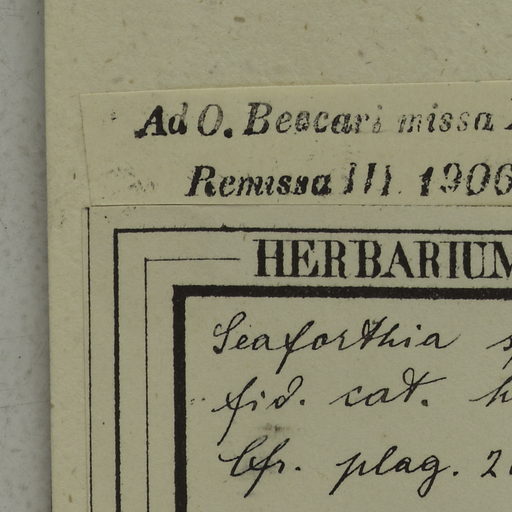 Ad O. Beccari missa
Remissa III 1906
HERBARIUM
Seaforthia
fid. cat.
Cfr. plag.